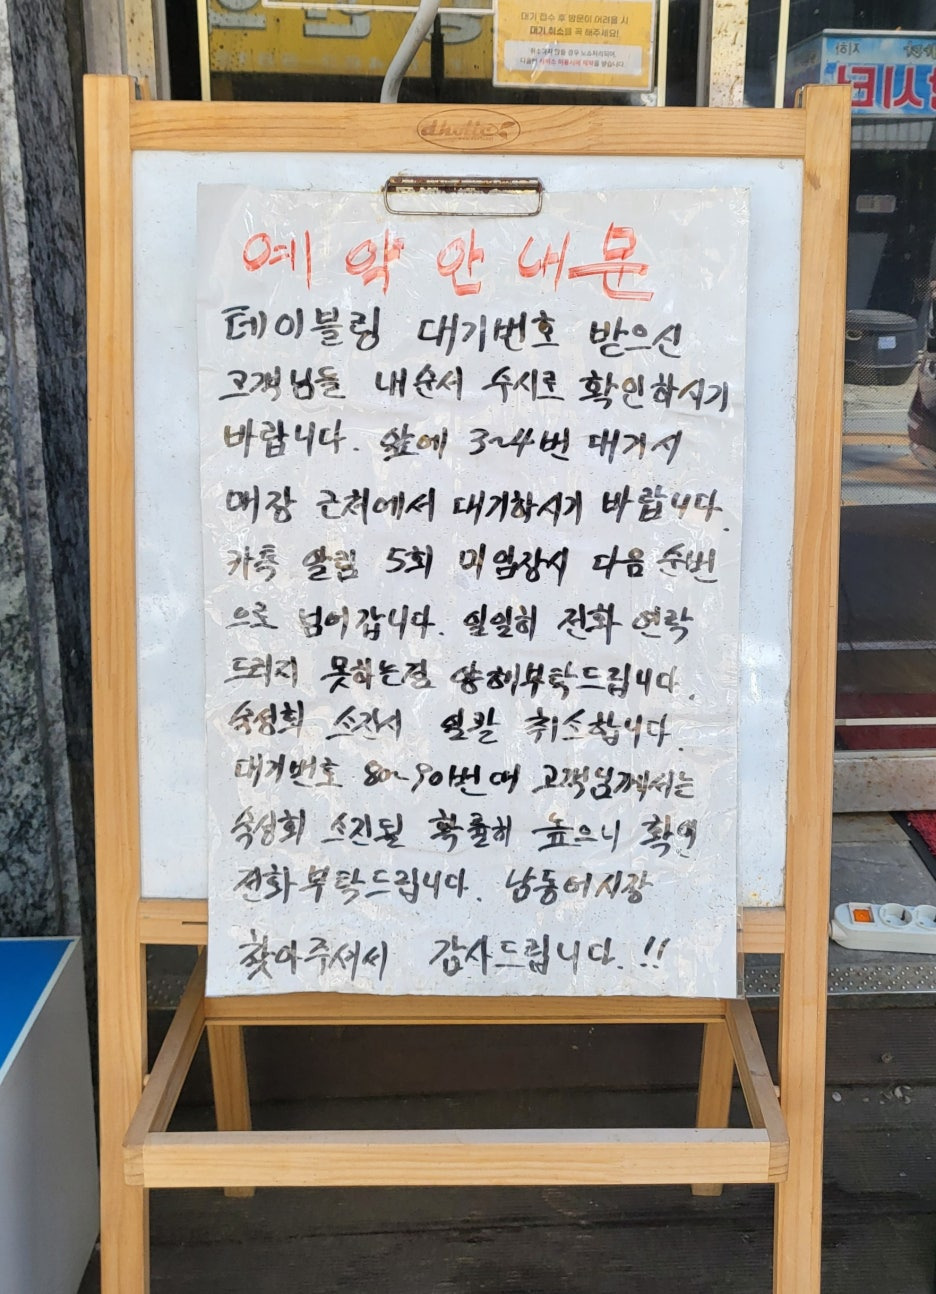 대기 접수 후 방문이 어려울 시
대기 취소를 꼭 해주세요!
dholic
예약안내문
테이블링 대기번호 받으신
고객님들 내순서 수시로 확인하시기
바랍니다. 앞에 3~4번 대기시
매장 근처에서 대기하시기 바랍니다.
카톡 알림 5회 미입장시 다음 순번
으로 넘어갑니다. 일일히 전화 연락
드리지 못하는점 양해부탁드립니다.
숙성회 소진시 일괄 취소합니다.
대기번호 80~90번대 고객님께서는
숙성회 소진될 확률이 높으니 확인
전화 부탁드립니다. 남동어시장
찾아주셔서 감사드립니다.!!